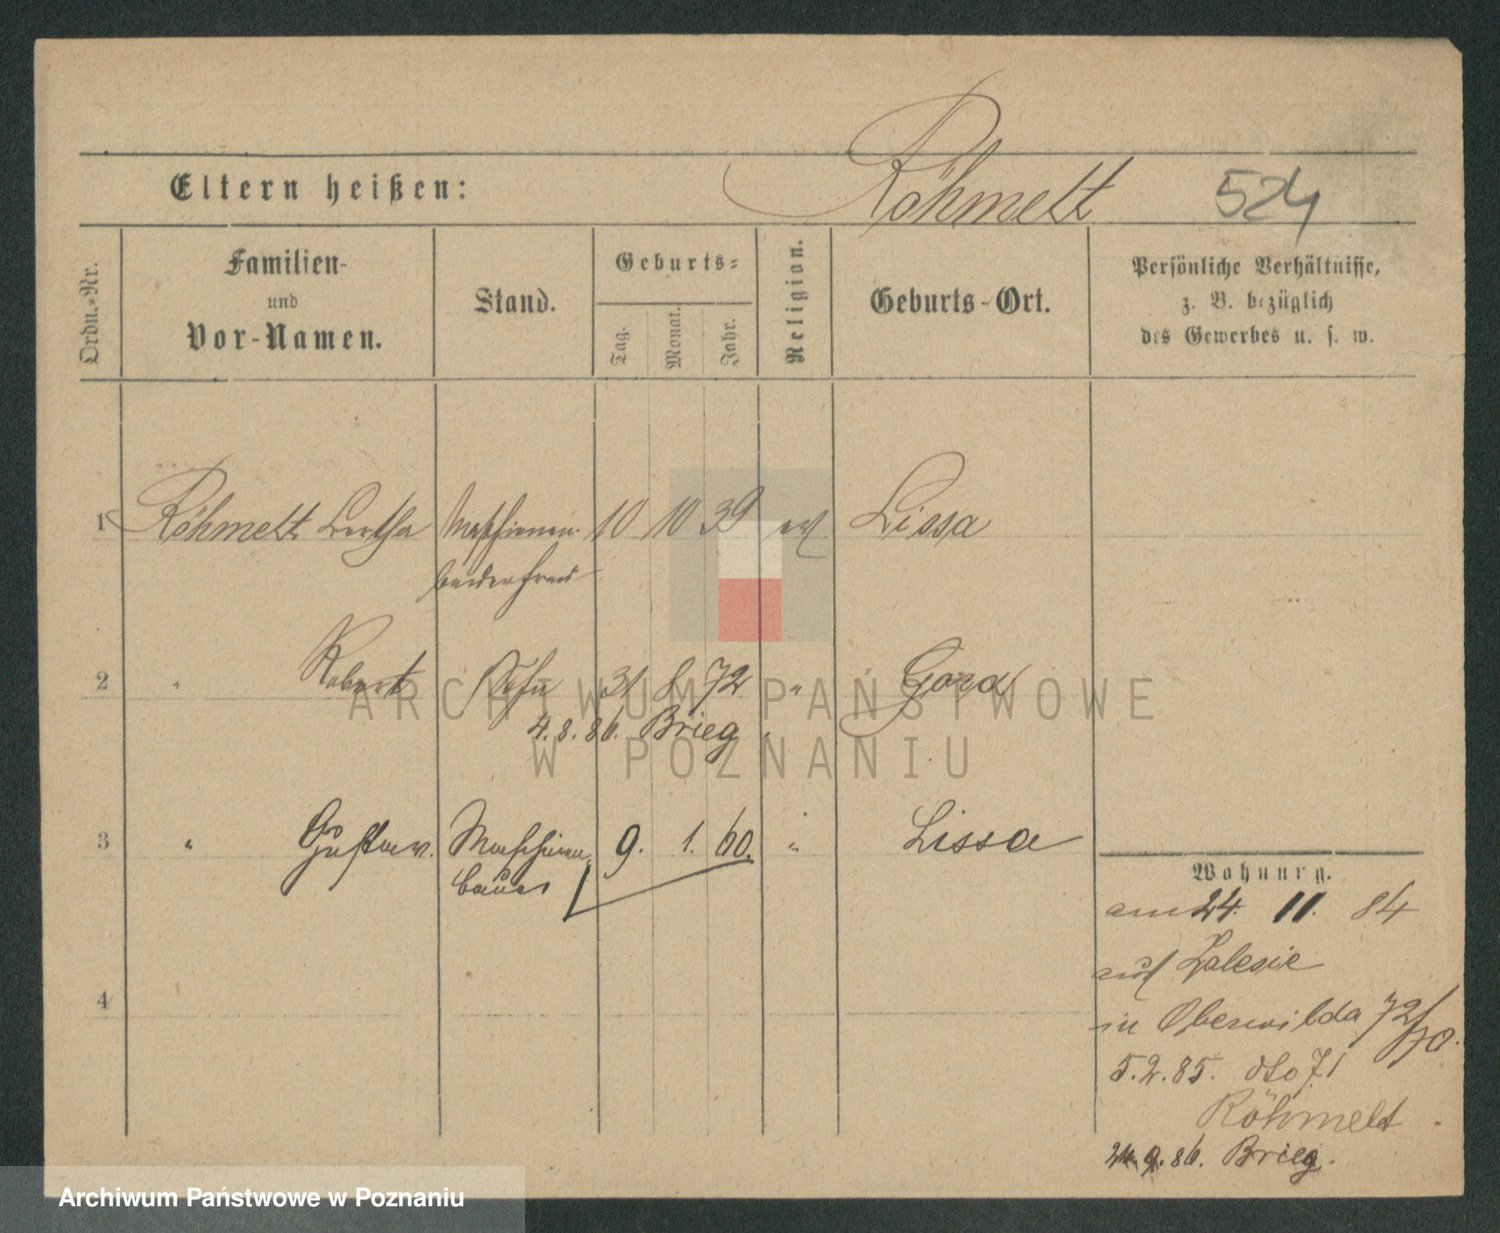 Röhmelt 524
Eltern heißen:
Ordn.-Nr.
Familien-
und
Vor-Namen.
Stand.
Geburts-
Tag.
Monat.
Jahr.
Religion.
Geburts-Ort.
Persönliche Verhältnisse,
z. B. bezüglich
des Gewerbes u. s. w.
1 Röhmelt Bertha Maschinen 10 10 39 ev Lissa
bauerfrau
2 " Robert Sohn 31 8 72 " Gora
4.8.86. Brieg
3 " Gustav. Maschinen 9. 1. 60. " Lissa
bauer
4
Wohnung.
am 24. 11. 84
auf Zalesie
in Oberwilda 72/70.
5.2.85. dto 71
Röhmelt
24.9.86. Brieg.
ARCHIWUM PAŃSTWOWE
W POZNANIU
Archiwum Państwowe w Poznaniu